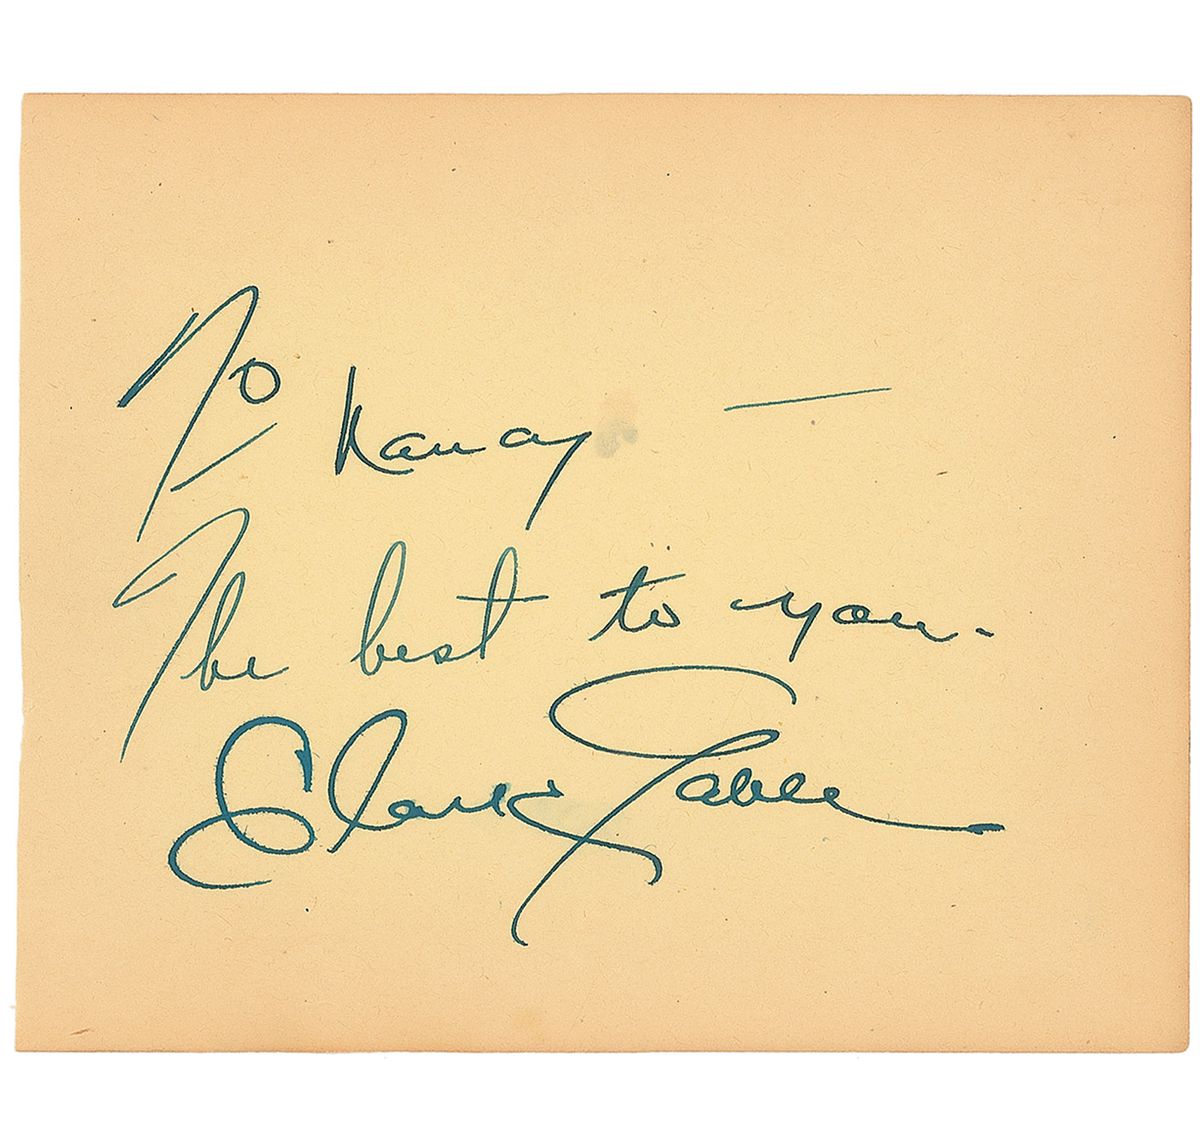 To Nancy —
The best to you -
Clark Gable